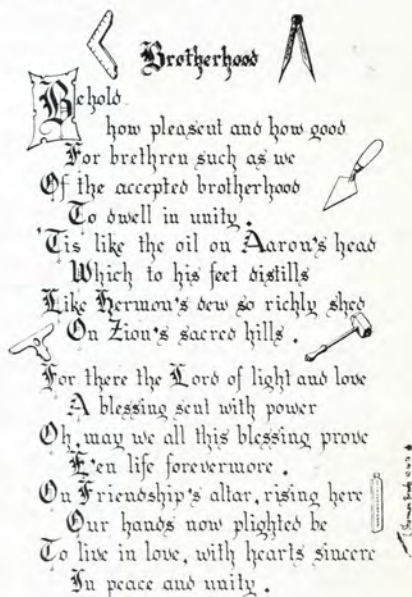 Brotherhood
Behold
how pleasent and how good
For brethren such as we
Of the accepted brotherhood
To dwell in unity.
'Tis like the oil on Aaron's head
Which to his feet distills
Like Hermon's dew so richly shed
On Zion's sacred hills.
For there the Lord of light and love
A blessing sent with power
Oh, may we all this blessing prove
E'en life forevermore.
On Friendship's altar, rising here
Our hands now plighted be
To live in love, with hearts sincere
In peace and unity.